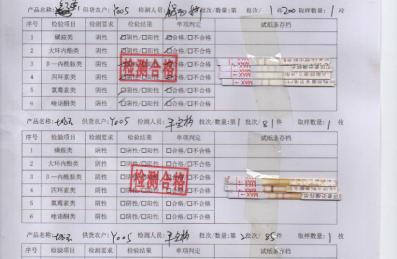 产品名称: 供货农户: Y005 检测人员: 批次/数量:第1批次/200件 取样数量:1枚
序号 检验项目 检测要求 检验结果 单项判定 试纸条存档
1 磺胺类 阴性 □阴性/□阳性 □合格/□不合格
2 大环内酯类 阴性 □阴性/□阳性 □合格/□不合格
3 β一内酰胺类 阴性 □阴性/□阳性 □合格/□不合格
4 四环素类 阴性 □阴性/□阳性 □合格/□不合格
5 氯霉素类 阴性 □阴性/□阳性 □合格/□不合格
6 喹诺酮类 阴性 □阴性/□阳性 □合格/□不合格
检测合格
产品名称: 供货农户: Y005 检测人员: 批次/数量:第1批次/81件 取样数量:1枚
序号 检验项目 检测要求 检验结果 单项判定 试纸条存档
1 磺胺类 阴性 □阴性/□阳性 □合格/□不合格
2 大环内酯类 阴性 □阴性/□阳性 □合格/□不合格
3 β一内酰胺类 阴性 □阴性/□阳性 □合格/□不合格
4 四环素类 阴性 □阴性/□阳性 □合格/□不合格
5 氯霉素类 阴性 □阴性/□阳性 □合格/□不合格
6 喹诺酮类 阴性 □阴性/□阳性 □合格/□不合格
检测合格
MAX
产品名称: 供货农户: Y005 检测人员: 批次/数量:第2批次/85件 取样数量:1枚
序号 检验项目 检测要求 检验结果 单项判定 试纸条存档